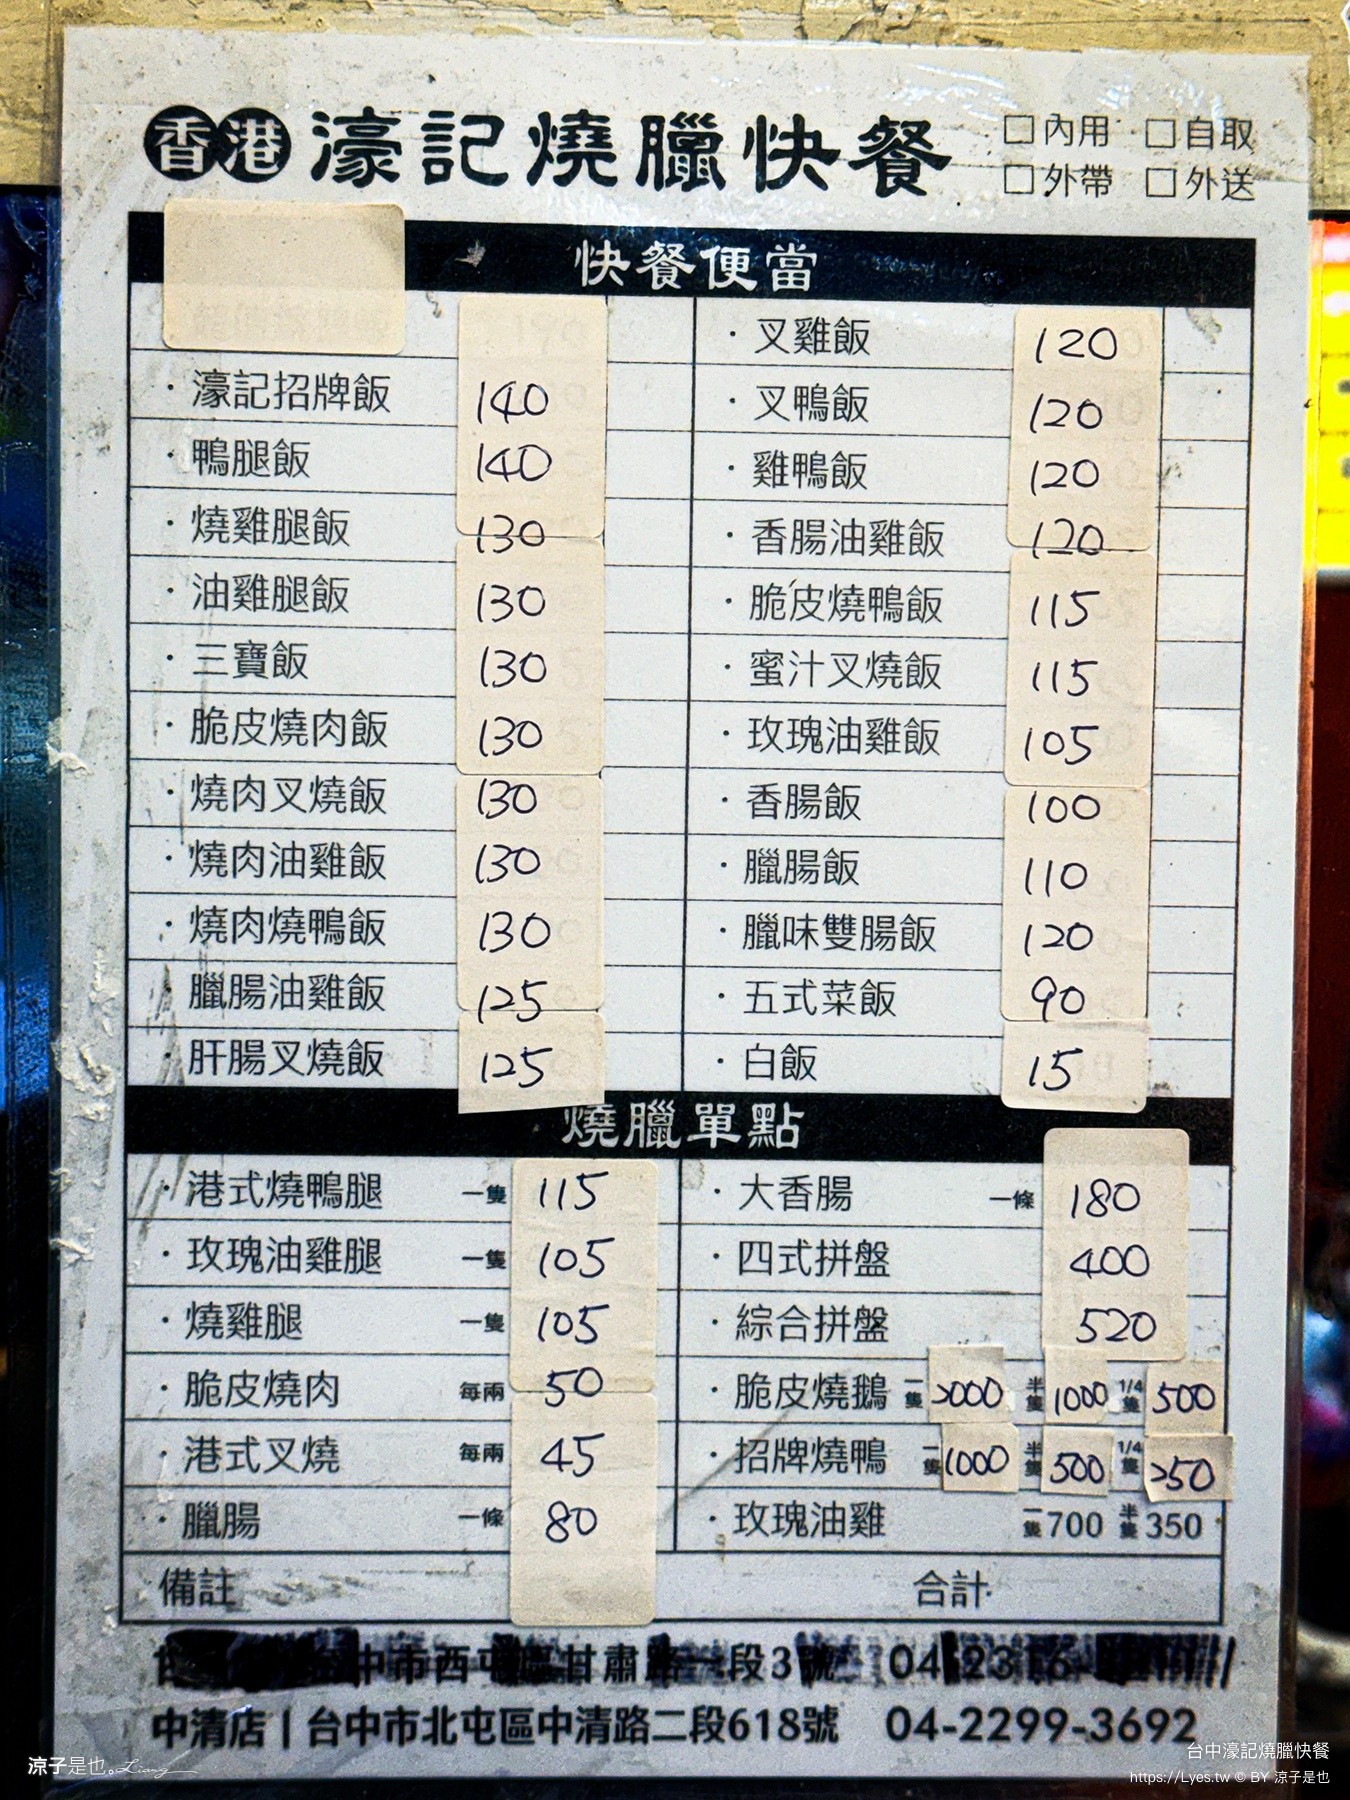 香港 濠記燒臘快餐 □內用 □自取
□外帶 □外送
快餐便當
·叉雞飯 120
·濠記招牌飯 140
·叉鴨飯 120
·鴨腿飯 140
·雞鴨飯 120
·燒雞腿飯 130
·香腸油雞飯 120
·油雞腿飯 130
·脆皮燒鴨飯 115
·三寶飯 130
·蜜汁叉燒飯 115
·脆皮燒肉飯 130
·玫瑰油雞飯 105
·燒肉叉燒飯 130
·香腸飯 100
·燒肉油雞飯 130
·臘腸飯 110
·燒肉燒鴨飯 130
·臘味雙腸飯 120
·臘腸油雞飯 125
·五式菜飯 90
·肝腸叉燒飯 125
·白飯 15
燒臘單點
·港式燒鴨腿 一隻 115
·大香腸 一條 180
·玫瑰油雞腿 一隻 105
·四式拼盤 400
·燒雞腿 一隻 105
·綜合拼盤 520
·脆皮燒肉 每兩 50
·脆皮燒鵝 一隻 2000 半隻 1000 1/4隻 500
·港式叉燒 每兩 45
·招牌燒鴨 一隻 1000 半隻 500 1/4隻 250
·臘腸 一條 80
·玫瑰油雞 一隻 700 半隻 350
備註 合計
中市西屯區甘肅路一段3號 04-2316
中清店 | 台中市北屯區中清路二段618號 04-2299-3692
涼子是也。Liang
台中濠記燒臘快餐
https://Lyes.tw © BY 涼子是也